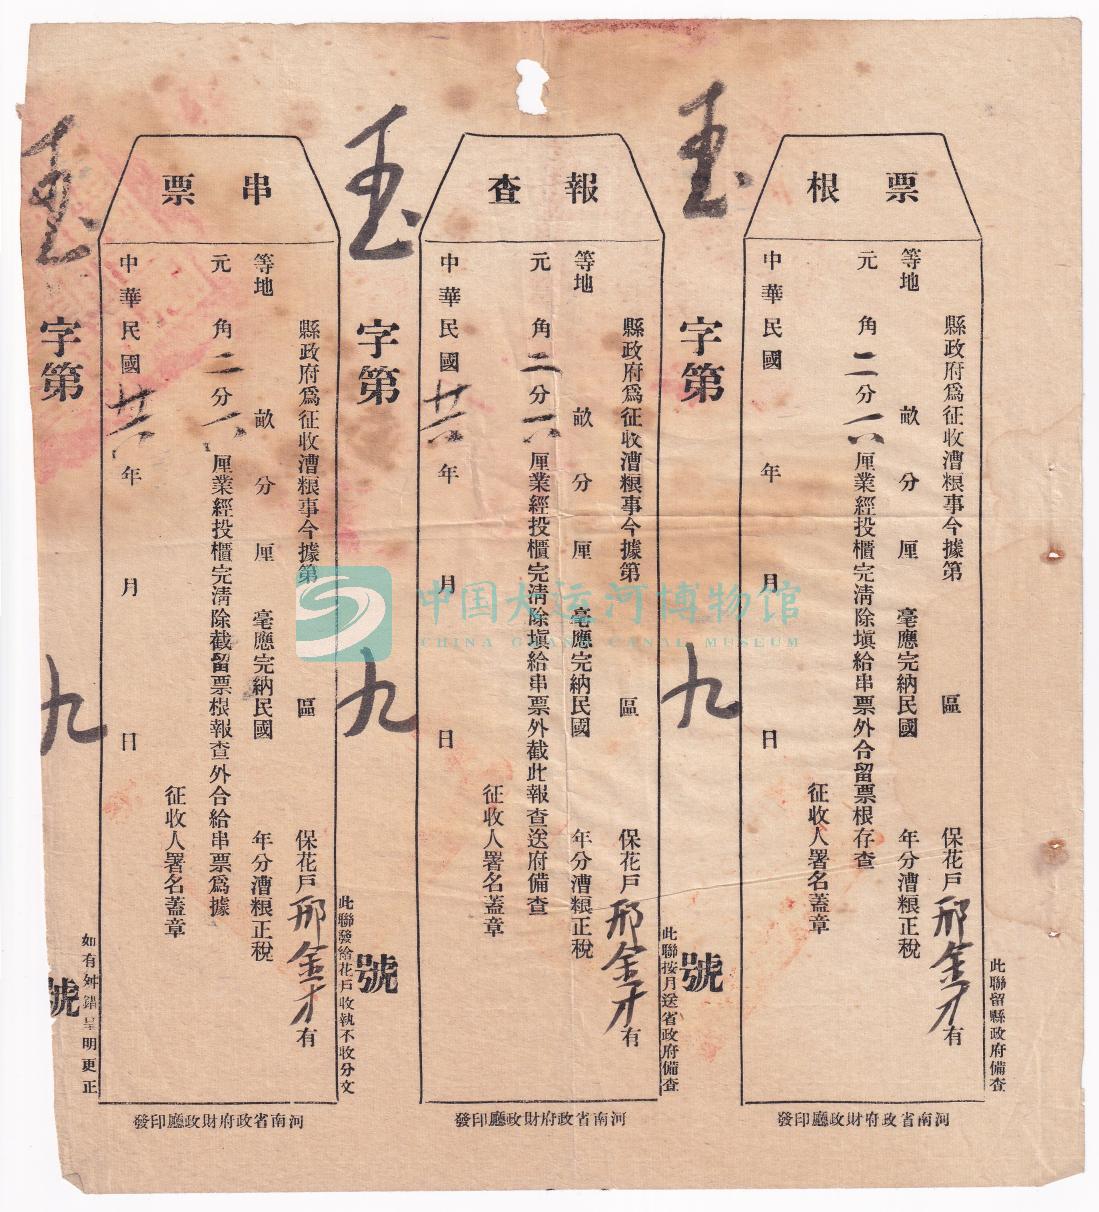 票根
縣政府爲征收漕糧事今據第 區 保花戶邢金才有
等地 畝 分 厘 毫應完納民國 年分漕糧正稅
元 角二分一八厘業經投櫃完清除塡給串票外合留票根存查
征收人署名蓋章
中華民國 年 月 日
此聯留縣政府備查
河南省政府財政廳印發
玉字第九號
報查
縣政府爲征收漕糧事今據第 區 保花戶邢金才有
等地 畝 分 厘 毫應完納民國 年分漕糧正稅
元 角二分一八厘業經投櫃完清除塡給串票外截此報查送府備查
征收人署名蓋章
中華民國廿六年 月 日
此聯按月送省政府備查
河南省政府財政廳印發
玉字第九號
串票
縣政府爲征收漕糧事今據第 區 保花戶邢金才有
等地 畝 分 厘 毫應完納民國 年分漕糧正稅
元 角二分一八厘業經投櫃完清除截留票根報查外合給串票爲據
征收人署名蓋章
中華民國廿六年 月 日
此聯發給花戶收執不收分文
如有舛錯呈明更正
河南省政府財政廳印發
玉字第九號
中国大运河博物馆
CHINA GRAND CANAL MUSEUM